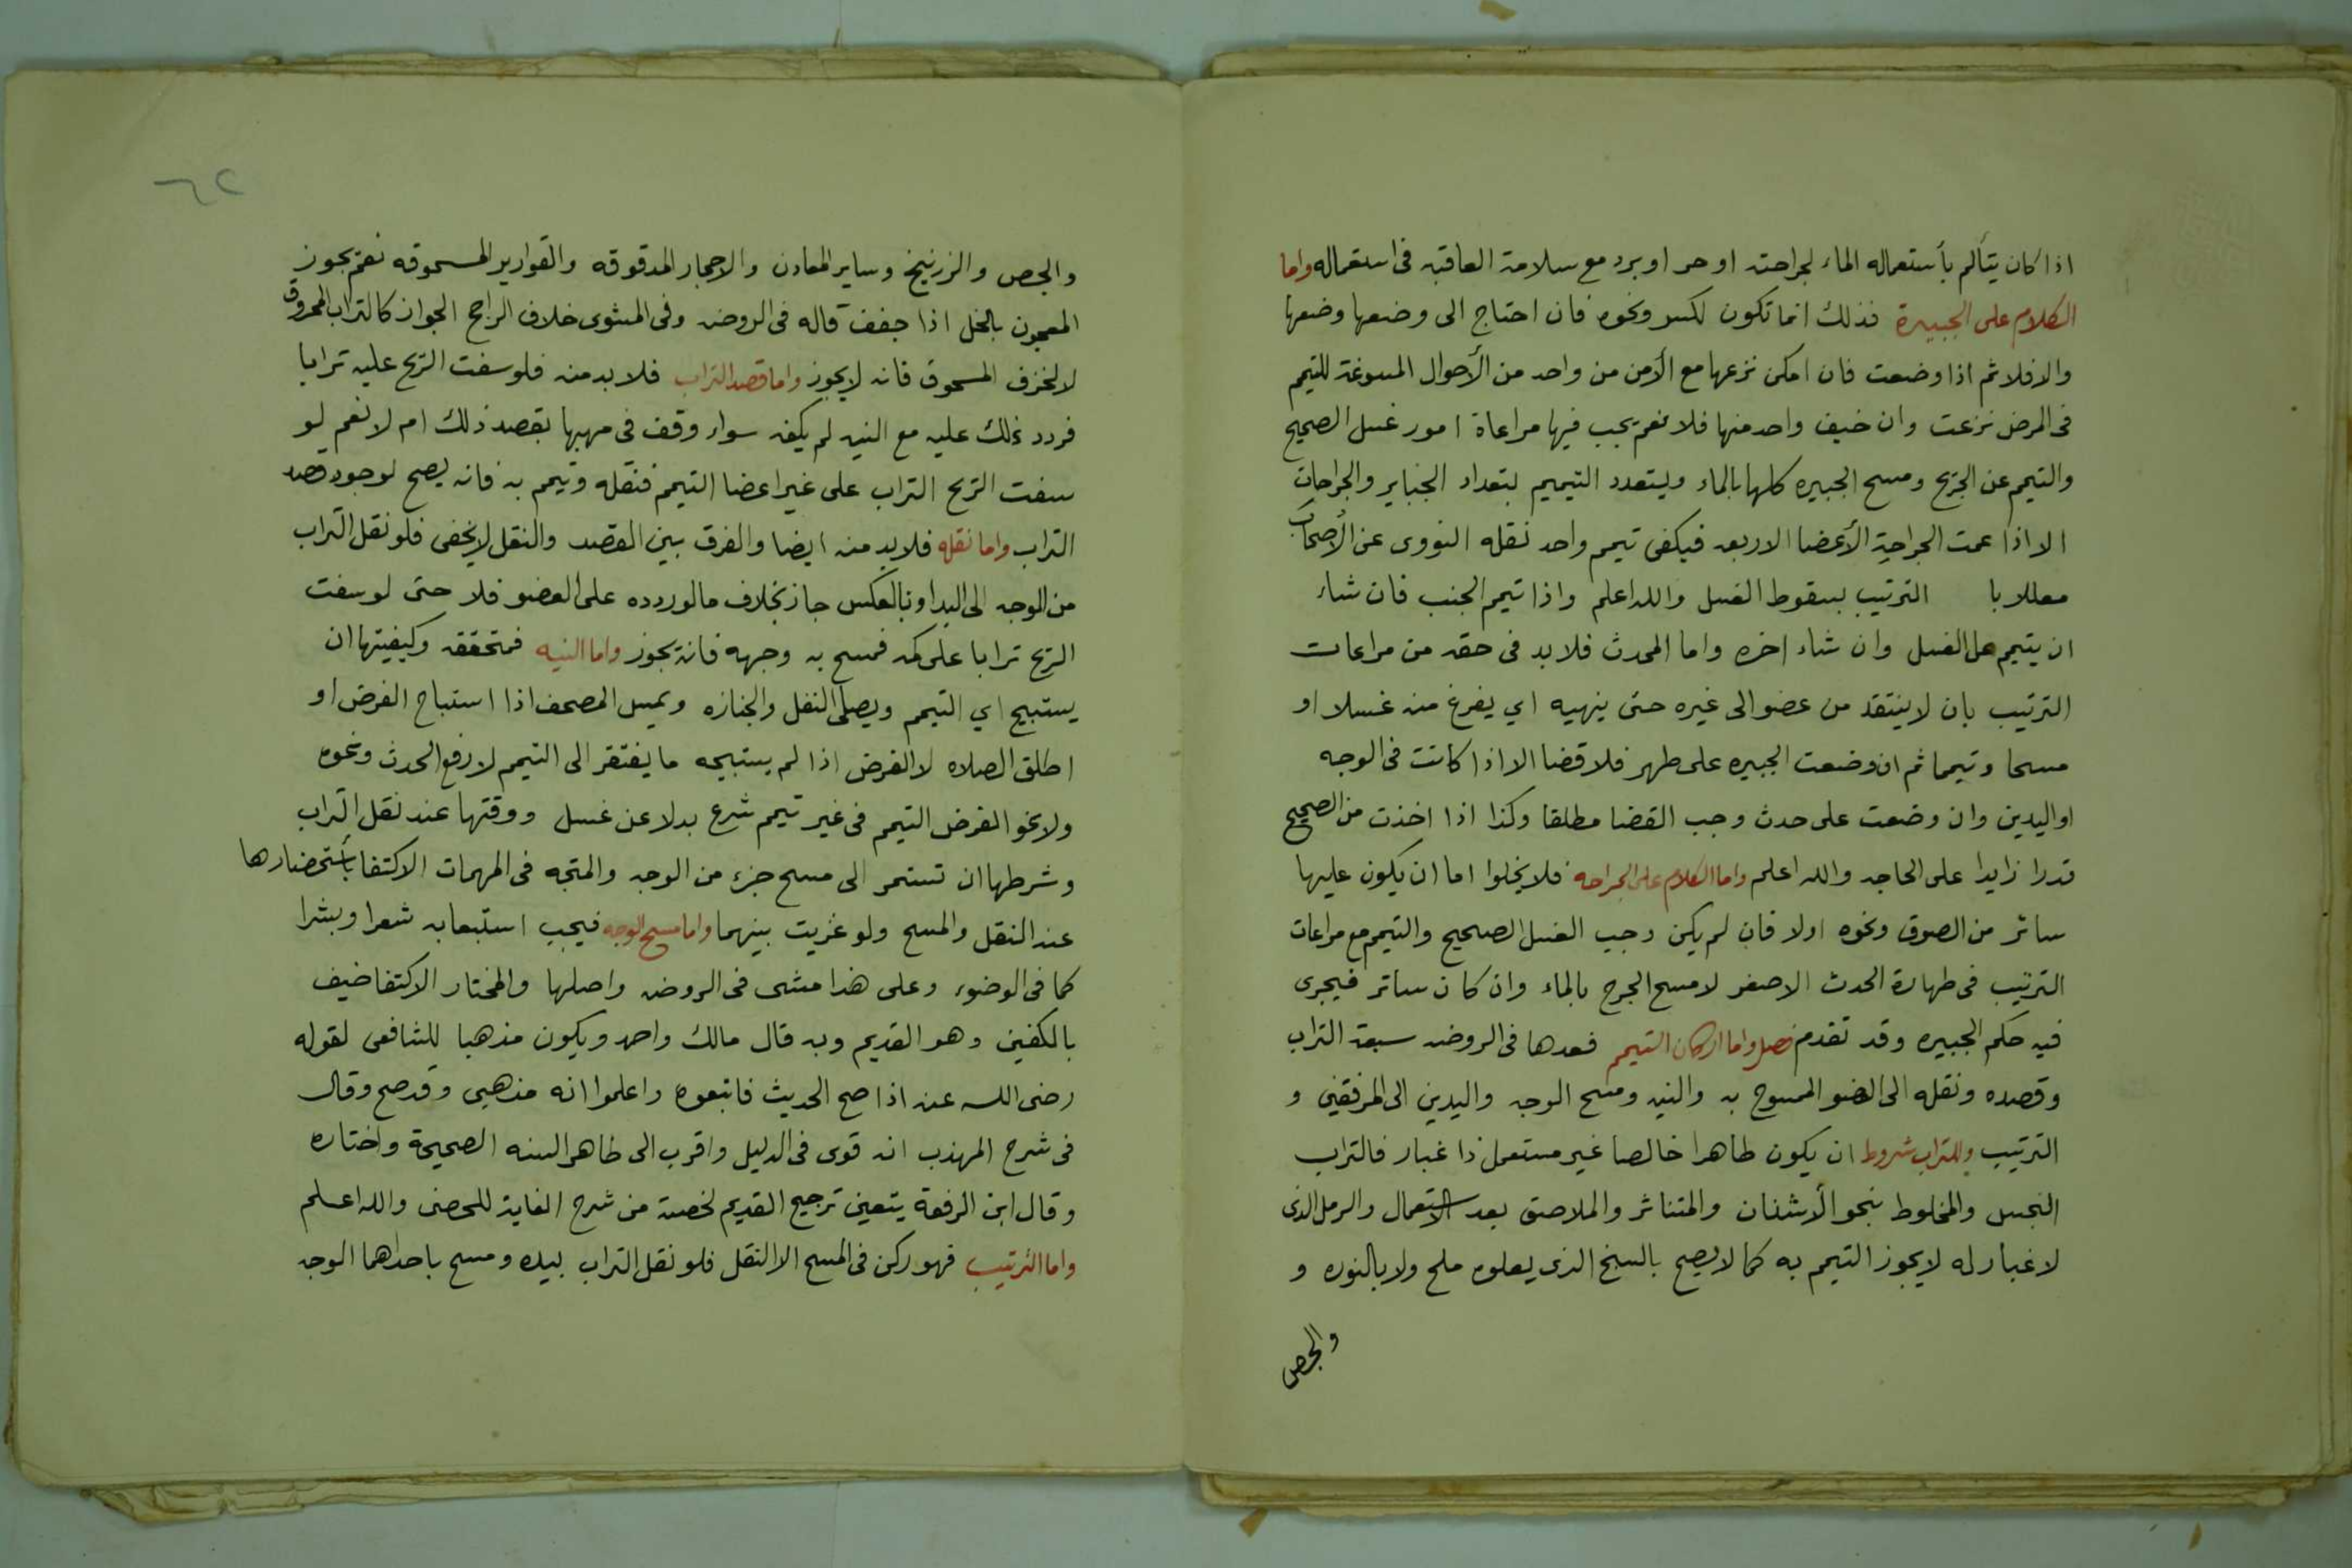 اذا كان يتألم بأستعماله الماء لجراحته او حر او برد مع سلامة العاقبه فى استعماله واما
الكلام على الجبيرة فذلك انما تكون لكسر ونحوه فان احتاج الى وضعها وضعها
والا فلا ثم اذا وضعت فان امكن نزعها مع الأمن من واحد من الأحوال المسوغة للتيمم
فى المرض نزعت وان خيف واحد منها فلا نعم يجب فيها مراعاة امور غسل الصحيح
والتيمم عن الجريح ومسح الجبيره كلها بالماء ويتعدد التيميم بتعداد الجبناير والجراحات
الا اذا عمت الجراحة الأعضا الاربعه فيكفى تيمم واحد نقله النووى عن الأصحاب
معللا با الترتيب بسقوط الغسل والله اعلم واذا تيمم الجنب فان شاء
ان يتيمم الغسل وان شاء اخره واما المحدث فلا بد فى حقه من مراعات
الترتيب بان لا ينتقد من عضو الى غيره حتى ينهيه اي يفرغ منه غسلا او
مسحا وتيمما ثم ان وضعت الجبيره على طهر فلا قضا الا اذا كانت فى الوجه
او اليدين وان وضعت على حدث وجب القضا مطلقا وكذا اذا اخذت من الصحيح
قدرا زايدا على الحاجه والله اعلم واما الكلام على الجراحه فلا يخلوا اما ان يكون عليها
ساتر من الصوق ونحوه اولا فان لم يكن وجب الغسل الصحيح والتيمم مع مراعات
الترتيب فى طهارة الحدث الاصغر لا مسح الجرح بالماء وان كان ساتر فيجرى
فيه حكم الجبيره وقد تقدم فصل واما اركان التيمم فعدها فى الروضه سبعة التراب
وقصده ونقله الى العضو الممسوح به والنيه ومسح الوجه واليدين الى المرفقين و
الترتيب وللتراب شروط ان يكون طاهرا خالصا غير مستعمل ذا غبار فالتراب
النجس والمخلوط بنحو الأشنان والمتناثر والملاصق بعد الاستعمال والرمل الذى
لا غبار له لا يجوز التيمم به كما لا يصح بالسبخ الذى يعلوه ملح ولا بالنوره و
والجص
٦٢
والجص والزرنيخ وساير المعادن والاحجار المدقوقه والقوارير المسحوقه نعم يجوز
المعجون بالخل اذا جفف قاله فى الروضه وفى المشوى خلاف الراجح الجواز كالتراب المحروق
لا الخزف المسحوق فانه لا يجوز واما قصد التراب فلا بد منه فلو سفت الريح عليه ترابا
فردد ذلك عليه مع النيه لم يكف سواء وقف فى مهبها بقصد ذلك ام لا نعم لو
سفت الريح التراب على غير اعضا التيمم فنقله وتيمم به فانه يصح لوجود قصد
التراب واما نقله فلا بد منه ايضا والفرق بين القصد والنقل لا يخفى فلو نقل التراب
من الوجه الى اليد او بالعكس جاز بخلاف ما لو ردده على العضو فلا حتى لو سفت
الريح ترابا على كمه فمسح به وجهه فانه يجوز واما النيه فمتحققه وكيفيتها ان
يستبيح اي التيمم ويصلى النفل والجنازه ويمس المصحف اذا استباح الفرض او
اطلق الصلاه لا الفرض اذا لم يستبيحه ما يفتقر الى التيمم لا رفع الحدث ونحوه
ولا نحو الفرض التيمم فى غير تيمم شرع بدلا عن غسل ووقتها عند نقل التراب
وشرطها ان تستمر الى مسح جزء من الوجه والمتجه فى المهمات الاكتفا بأستحضارها
عند النقل والمسح ولو عزبت بينهما واما مسح الوجه فيجب استيعابه شعرا وبشرا
كما فى الوضوء وعلى هذا مشى فى الروضه واصلها والمختار الاكتفا ضيف
بالكفين وهو القديم وبه قال مالك واحمد ويكون مذهبا للشافعى لقوله
رضى الله عنه اذا صح الحديث فاتبعوه واعلموا انه مذهبى وقد صح وقال
فى شرح المهذب انه قوى فى الدليل واقرب الى ظاهر السنه الصحيحة واختاره
وقال ابن الرفعة يتعين ترجيح القديم لخصته من شرح الغاية للحصنى والله اعلم
واما الترتيب فهو ركن فى المسح الا النقل فلو نقل التراب بيده ومسح باحداهما الوجه